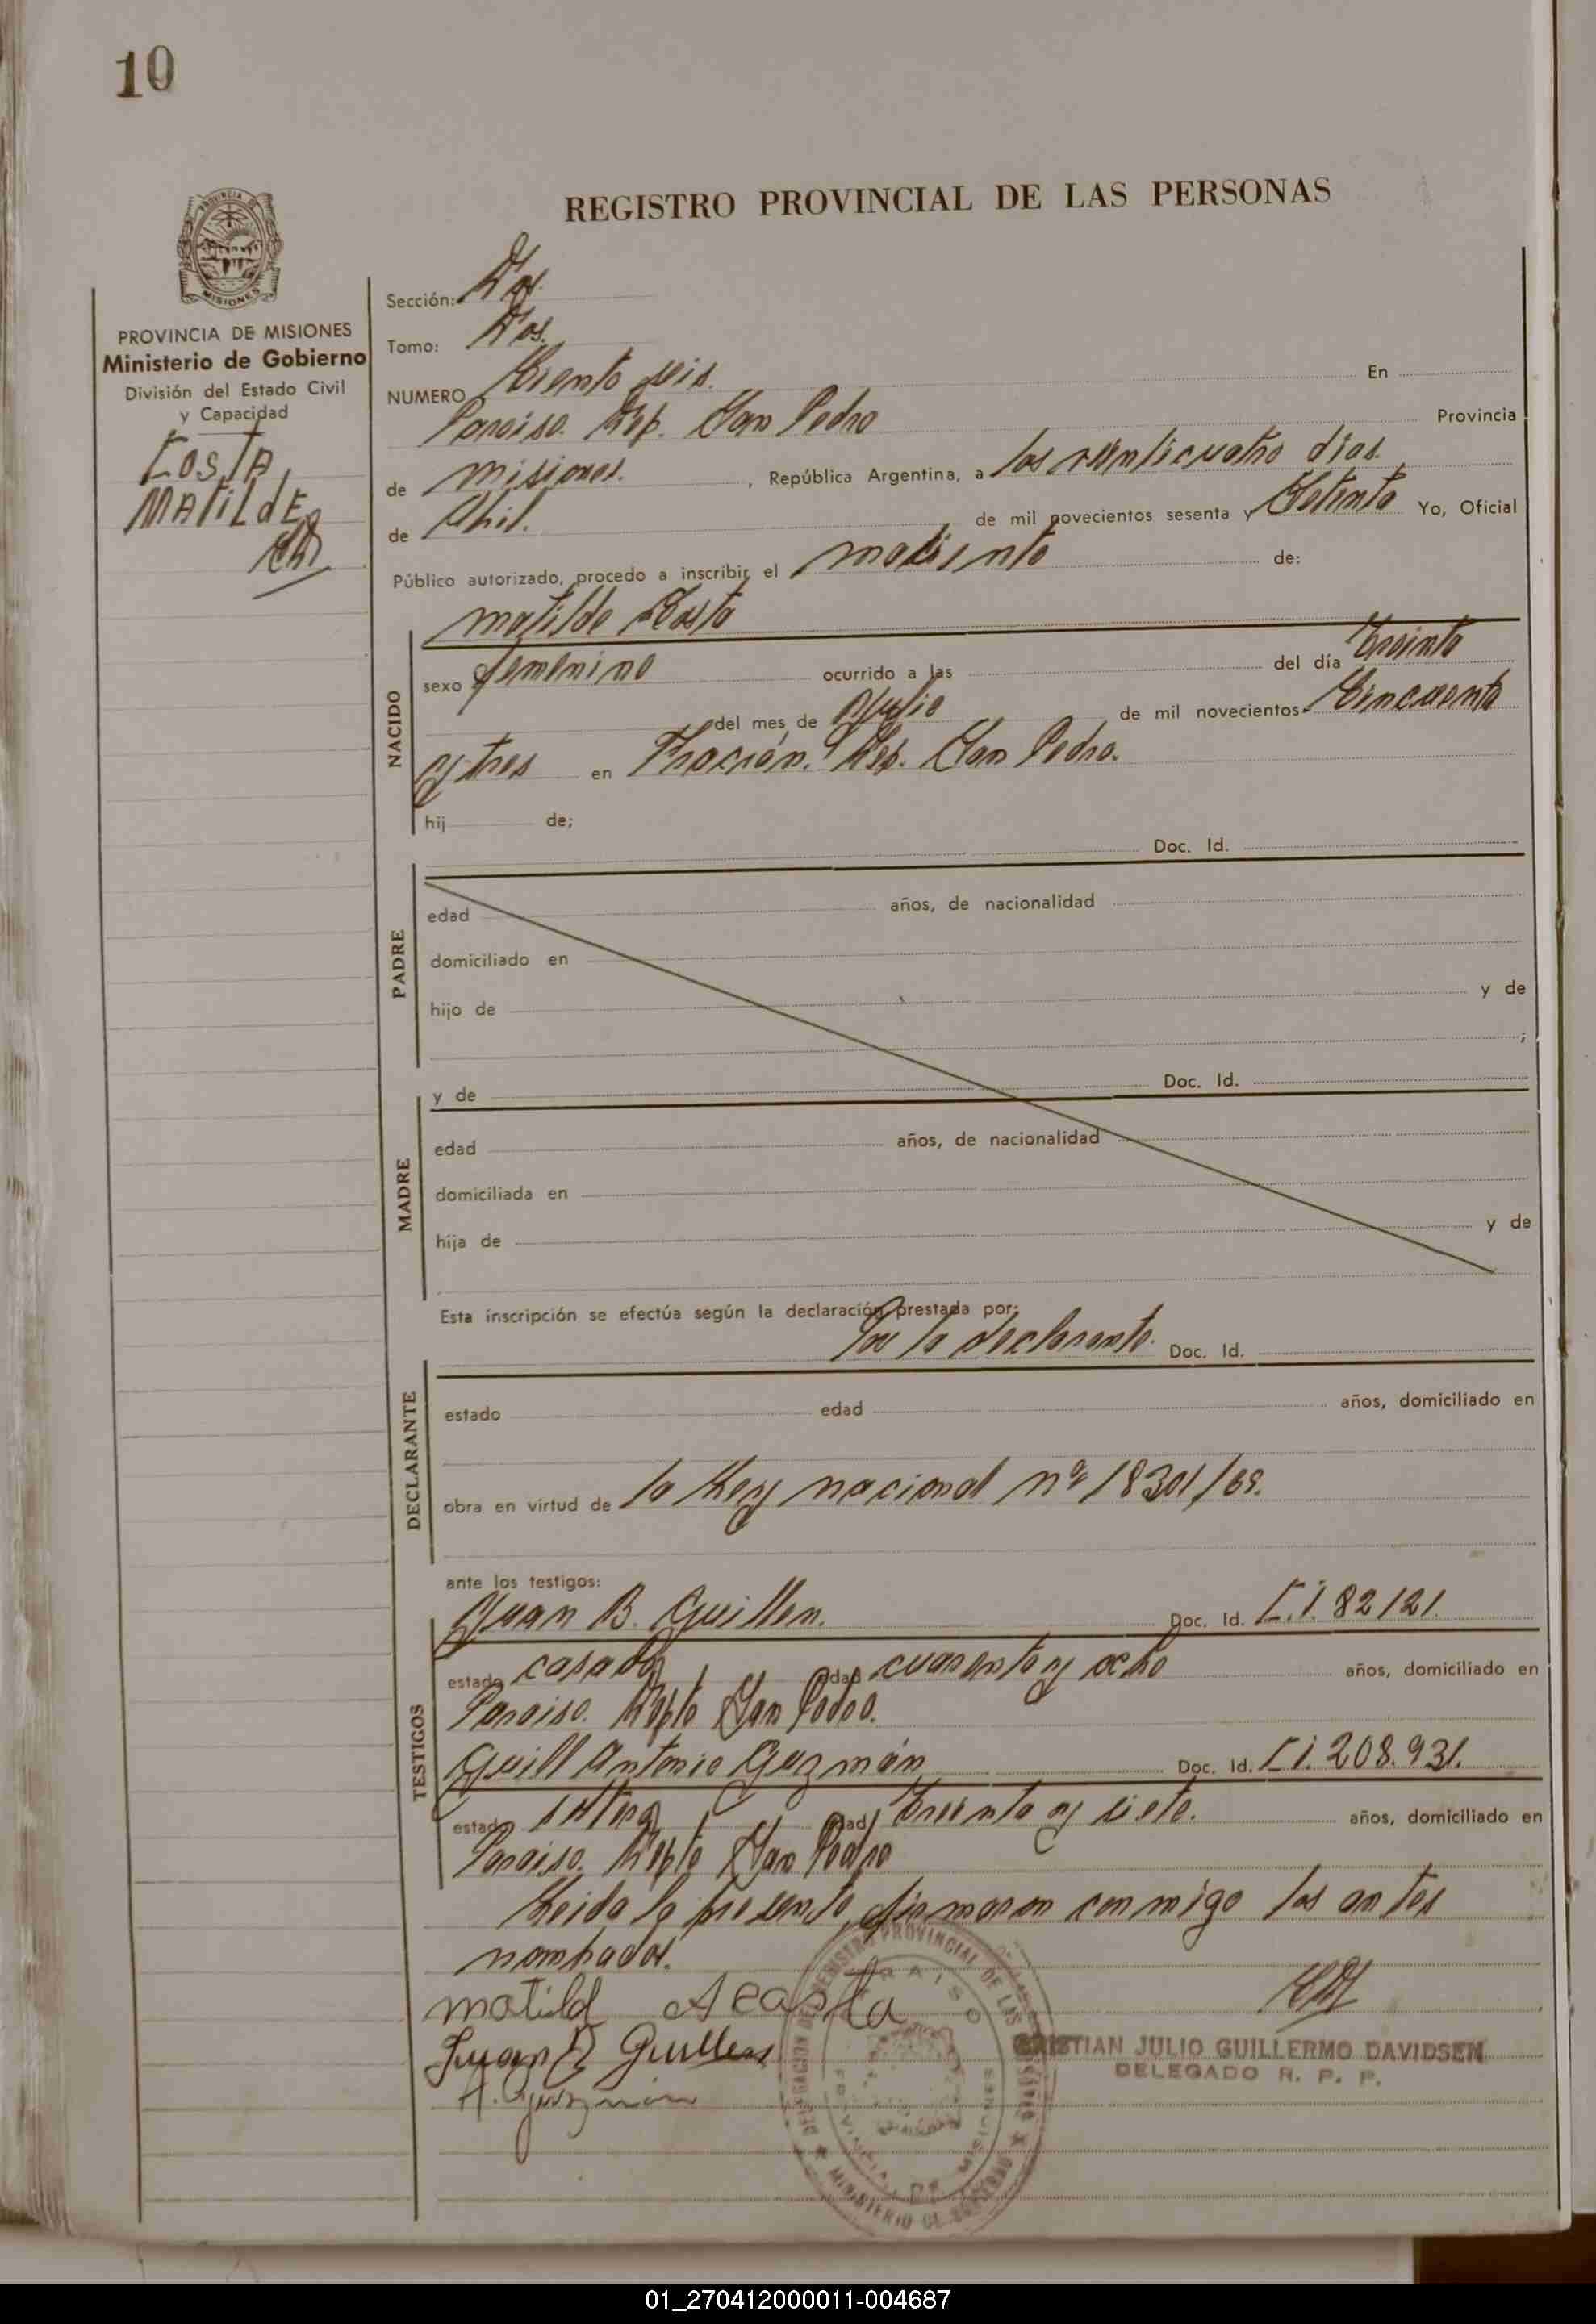 10
REGISTRO PROVINCIAL DE LAS PERSONAS
MISIONES
PROVINCIA DE MISIONES
Ministerio de Gobierno
División del Estado Civil
y Capacidad
COSTA,
MATILDE
Sección: Dos.
Tomo: Dos.
NUMERO Ciento seis. En
Paraiso. Dep. San Pedro Provincia
de misiones. , República Argentina, a los veinticuatro dias
de Abril. de mil novecientos sesenta y Setenta Yo, Oficial
Público autorizado, procedo a inscribir el de:
matilde Costa
NACIDO
sexo femenino ocurrido a las del día Treinta
del mes de Julio de mil novecientos Cincuenta
y tres en Fracrán. Dep. San Pedro.
hij de;
Doc. Id.
PADRE
edad años, de nacionalidad
domiciliado en
hijo de y de
;
y de Doc. Id.
MADRE
edad años, de nacionalidad
domiciliada en
hija de y de
Esta inscripción se efectúa según la declaración prestada por:
Por la declarante. Doc. Id.
DECLARANTE
estado edad años, domiciliado en
obra en virtud de la Ley nacional nº 18301/69.
ante los testigos:
Juan B. Guillen. Doc. Id. C.i. 82121.
TESTIGOS
estado casado edad cuarenta y ocho años, domiciliado en
Paraiso. Depto San Pedro.
Guill Antonio Guzmán Doc. Id. C i. 208.931.
estado soltero edad Treinta y siete. años, domiciliado en
Paraiso. Depto San Pedro
Leida la presente, firmaron conmigo los antes
nombrados.
matild Acosta
Juan B Guillen
A. Guzmán
CRISTIAN JULIO GUILLERMO DAVIDSEN
DELEGADO R. P. P.
DELEGACION DEL REGISTRO PROVINCIAL DE LAS PERSONAS
MINISTERIO DE GOBIERNO
PARAISO
PROVINCIA DE MISIONES
01_270412000011-004687